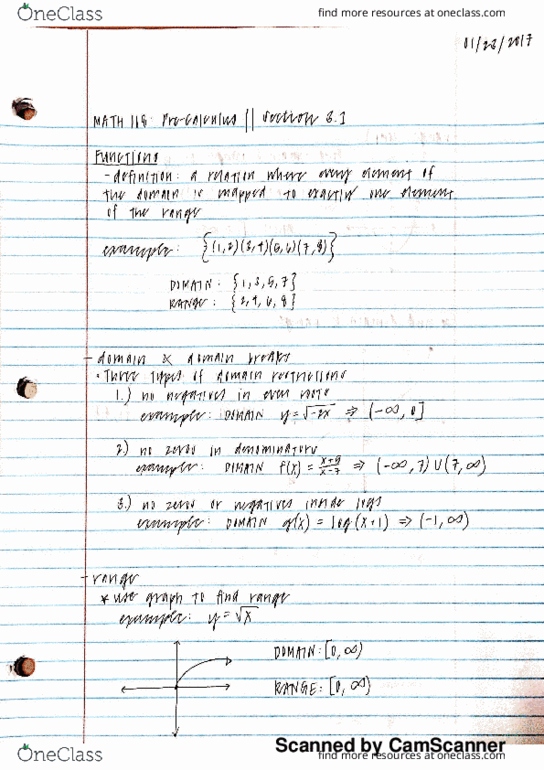 OneClass
find more resources at oneclass.com
01/23/2017
MATH 115: Pre-Calculus || Section 3.1
Functions
- definition: a relation where every element of
the domain is mapped to exactly one element
of the range
example: {(1,2)(3,4)(5,6)(7,8)}
DOMAIN: {1,3,5,7}
RANGE: {2,4,6,8}
- domain & domain breaks
• Three types of domain restrictions
1.) no negatives in even roots
example: DOMAIN y=√-2x ⇒ (-∞, 0]
2) no zeros in denominators
example: DOMAIN f(x) = x+9/x-7 ⇒ (-∞, 7) U (7, ∞)
3.) no zeros or negatives inside logs
example: DOMAIN g(x) = log(x+1) ⇒ (-1, ∞)
- range
* use graph to find range
example: y=√x
DOMAIN: [0, ∞)
RANGE: [0, ∞)
Scanned by CamScanner
OneClass
find more resources at oneclass.com